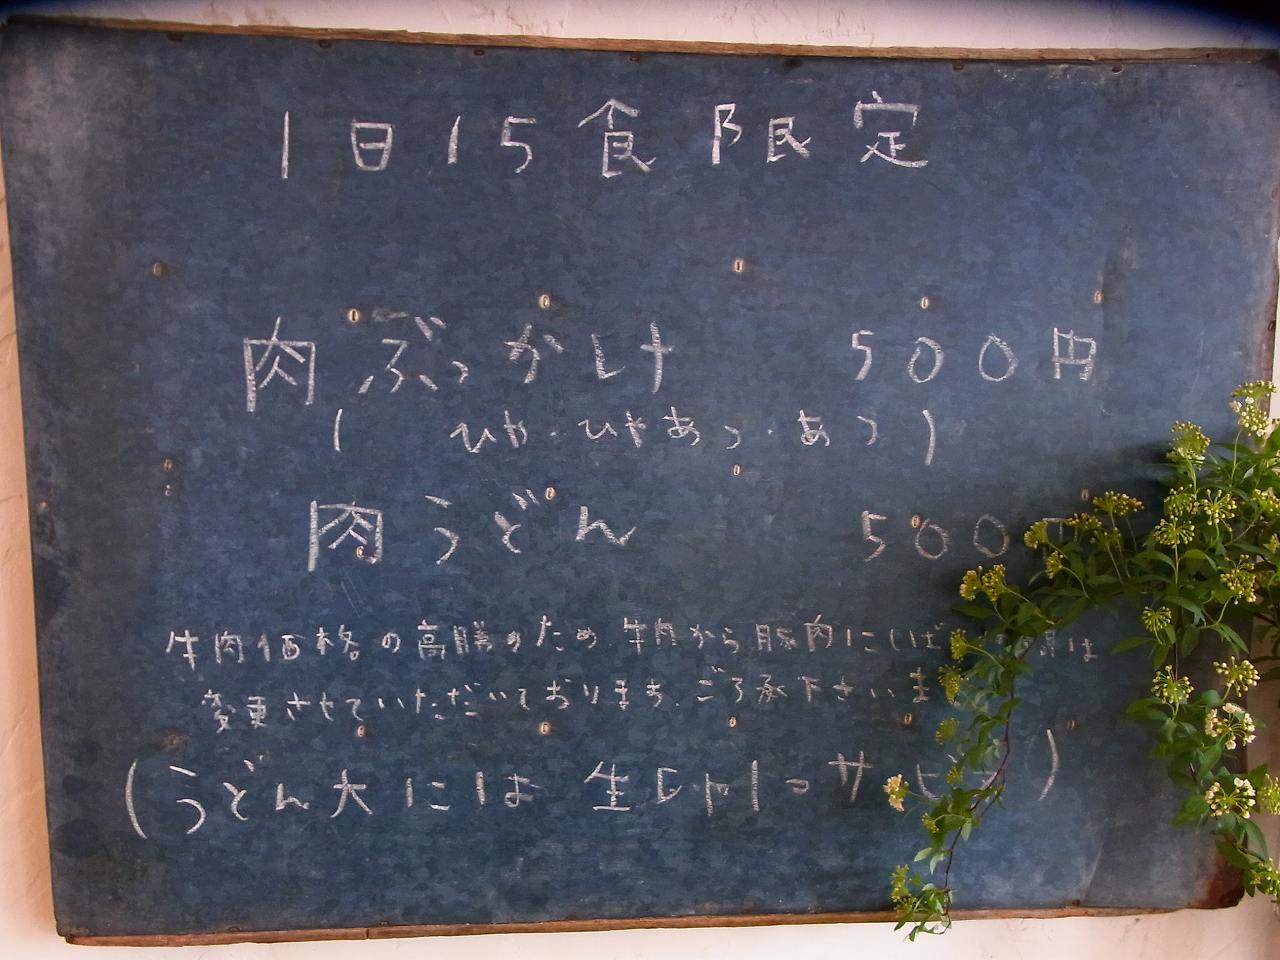 1日15食限定
肉ぶっかけ 500円
( ひや・ひやあつ・あつ )
肉うどん 500円
牛肉価格の高騰のため 牛肉から豚肉にしば 間は
変更させていただいております。ご了承下さいま
(うどん大には 生 サービス)